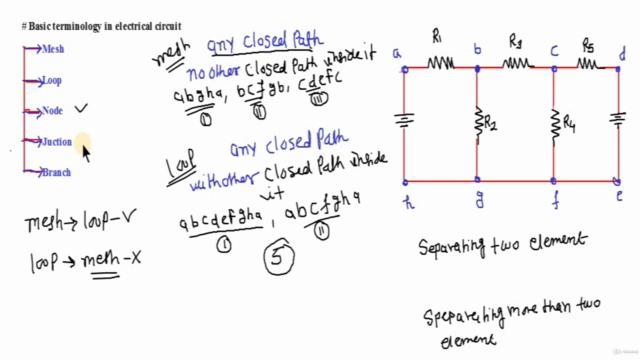 # Basic terminology in electrical circuit
Mesh
Loop
Node ✓
Juction
Branch
mesh → loop - ✓
loop → mesh - X
mesh any closed Path
no other Closed Path inside it
abgha, bcfgb, cdefc
I II III
Loop any closed Path
with other Closed Path inside
it
abcdefgha, abcfgha
I II
5
R1 R3 R5
a b c d
R2 R4
h g f e
Separating two element
Speparating more than two
element